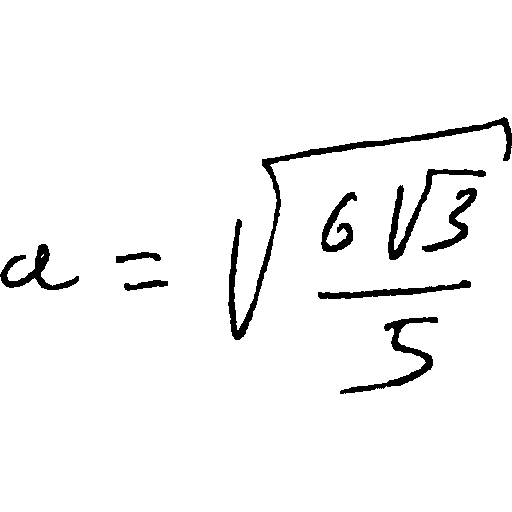 a = \sqrt{\frac{6\sqrt{3}}{5}}